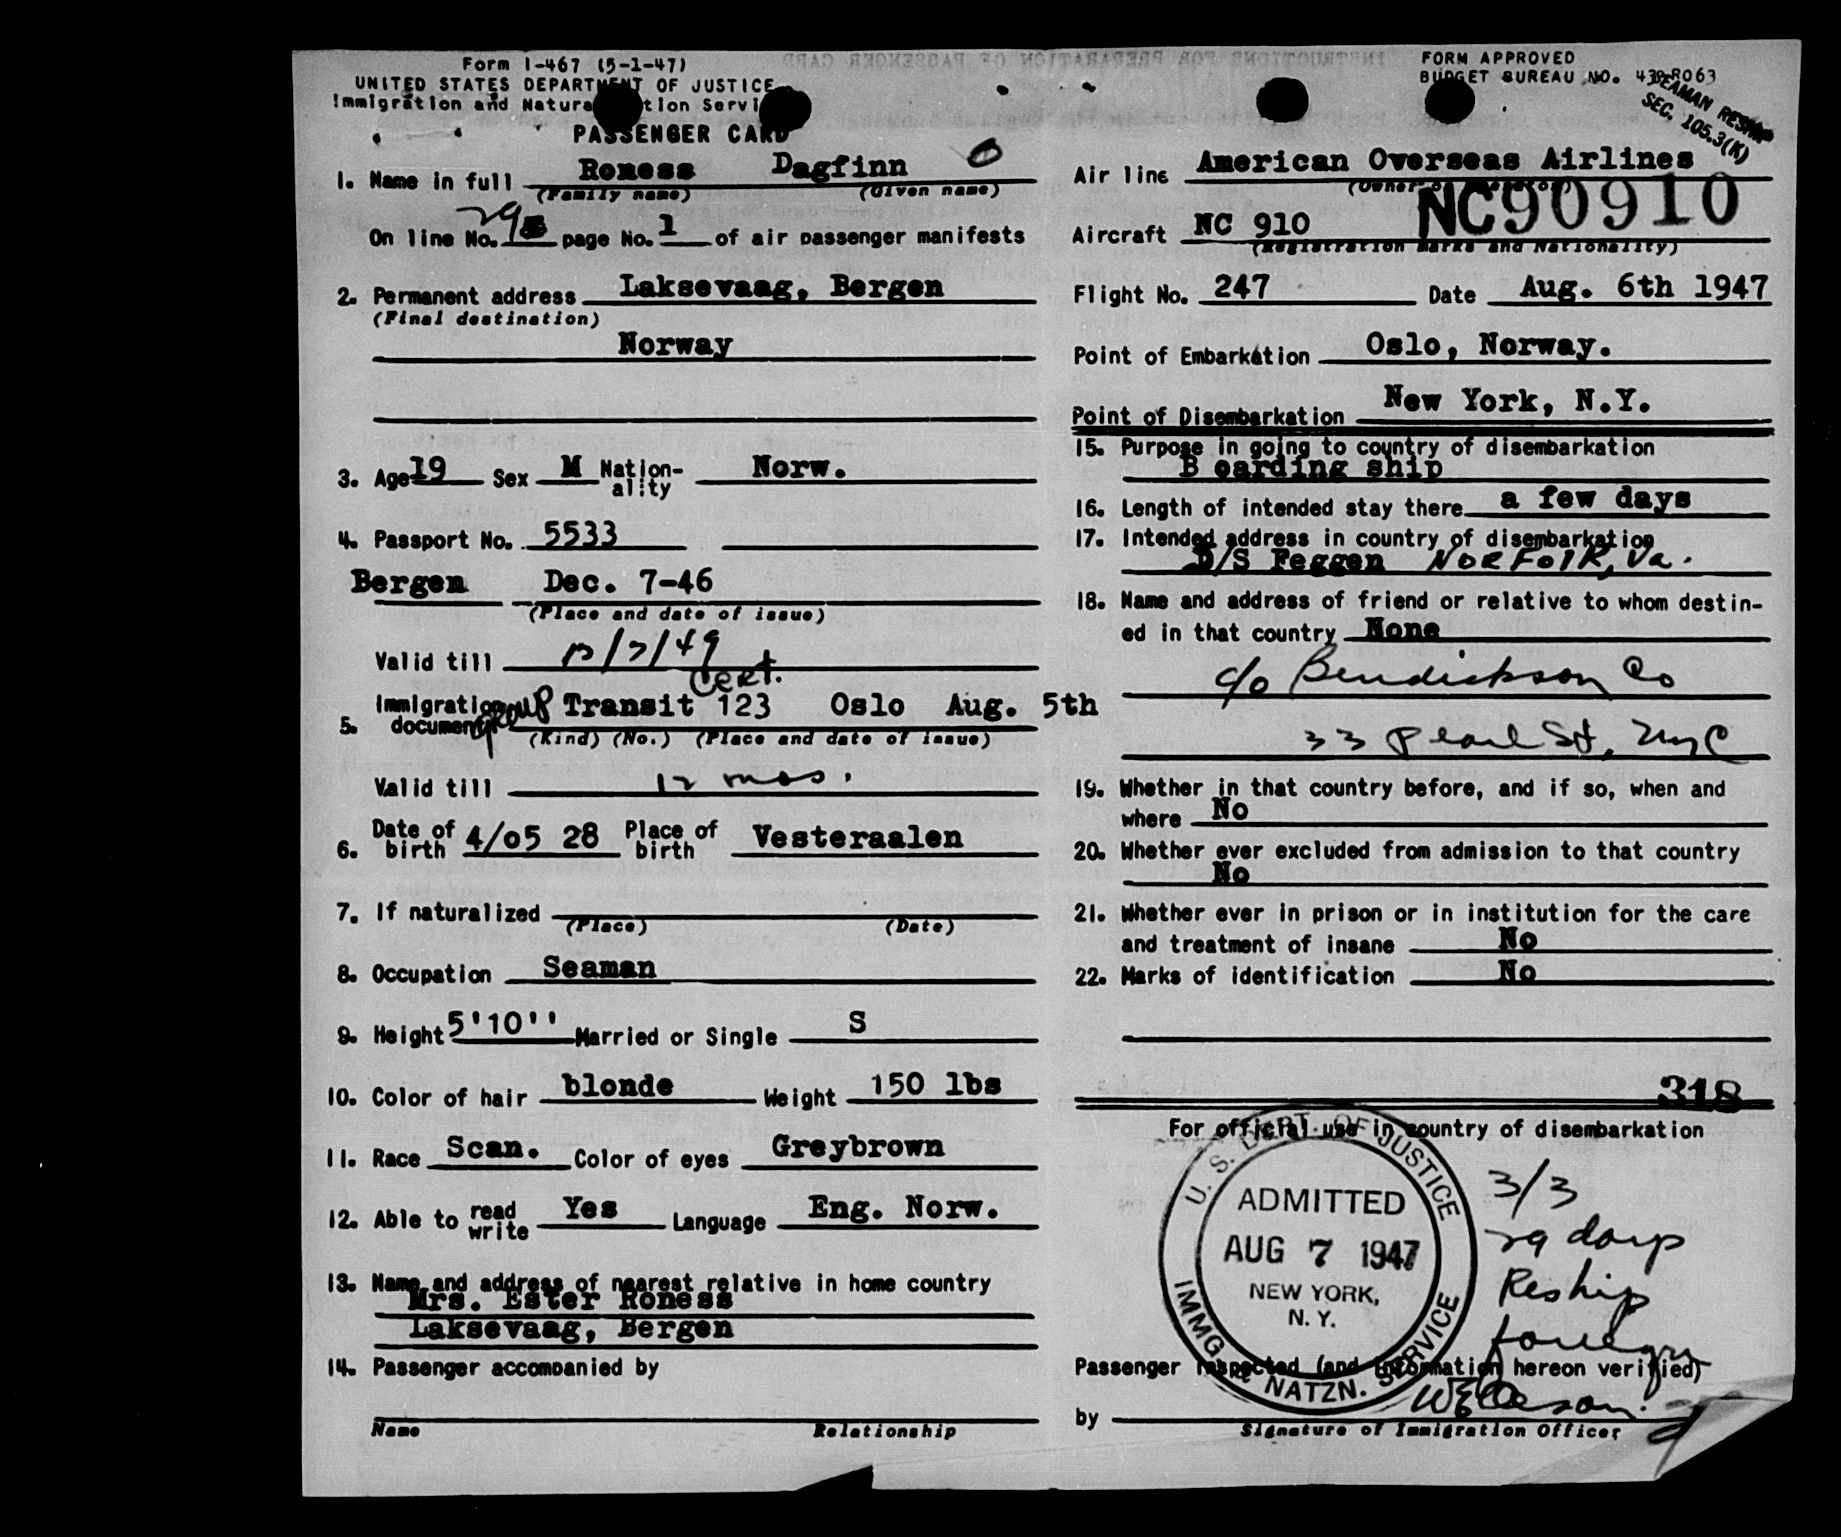 Form I-467 (5-1-47)
UNITED STATES DEPARTMENT OF JUSTICE
Immigration and Naturalization Service
PASSENGER CARD
1. Name in full Roness Dagfinn O
(Family name) (Given name)
On line No. 29 page No. 1 of air passenger manifests
2. Permanent address Laksevaag, Bergen
(Final destination)
Norway
3. Age 19 Sex M Nation-ality Norw.
4. Passport No. 5533
Bergen Dec. 7-46
(Place and date of issue)
Valid till 12/7/49
Cert.
5. Immigration document group Transit 123 Oslo Aug. 5th
(Kind) (No.) (Place and date of issue)
Valid till 12 mos.
6. Date of birth 4/05 28 Place of birth Vesteraalen
7. If naturalized
(Place) (Date)
8. Occupation Seaman
9. Height 5'10'' Married or Single S
10. Color of hair blonde Weight 150 lbs
11. Race Scan. Color of eyes Greybrown
12. Able to read write Yes Language Eng. Norw.
13. Name and address of nearest relative in home country
Mrs. Ester Roness
Laksevaag, Bergen
14. Passenger accompanied by
Name Relationship
INSTRUCTIONS FOR PREPARATION OF PASSENGER CARD
FORM APPROVED
BUDGET BUREAU NO. 43-R063
SEAMAN RESHIP
SEC. 105.3(K)
Air line American Overseas Airlines
(Owner or operator)
Aircraft NC 910 NC90910
(Registration marks and Nationality)
Flight No. 247 Date Aug. 6th 1947
Point of Embarkation Oslo, Norway.
Point of Disembarkation New York, N.Y.
15. Purpose in going to country of disembarkation
B oarding ship
16. Length of intended stay there a few days
17. Intended address in country of disembarkation
D/S Feggen NORFOlK, Va.
18. Name and address of friend or relative to whom destin-
ed in that country None
c/o Bendickson Co
33 Pearl St, NYC
19. Whether in that country before, and if so, when and
where No
20. Whether ever excluded from admission to that country
No
21. Whether ever in prison or in institution for the care
and treatment of insane No
22. Marks of identification No
318
For official use in country of disembarkation
U. S. DEPT. OF JUSTICE
ADMITTED
AUG 7 1947
NEW YORK,
N. Y.
IMMG. & NATZN. SERVICE
3/3
29 days
Reship
foreign
Passenger inspected (and information hereon verified)
by
Signature of Immigration Officer